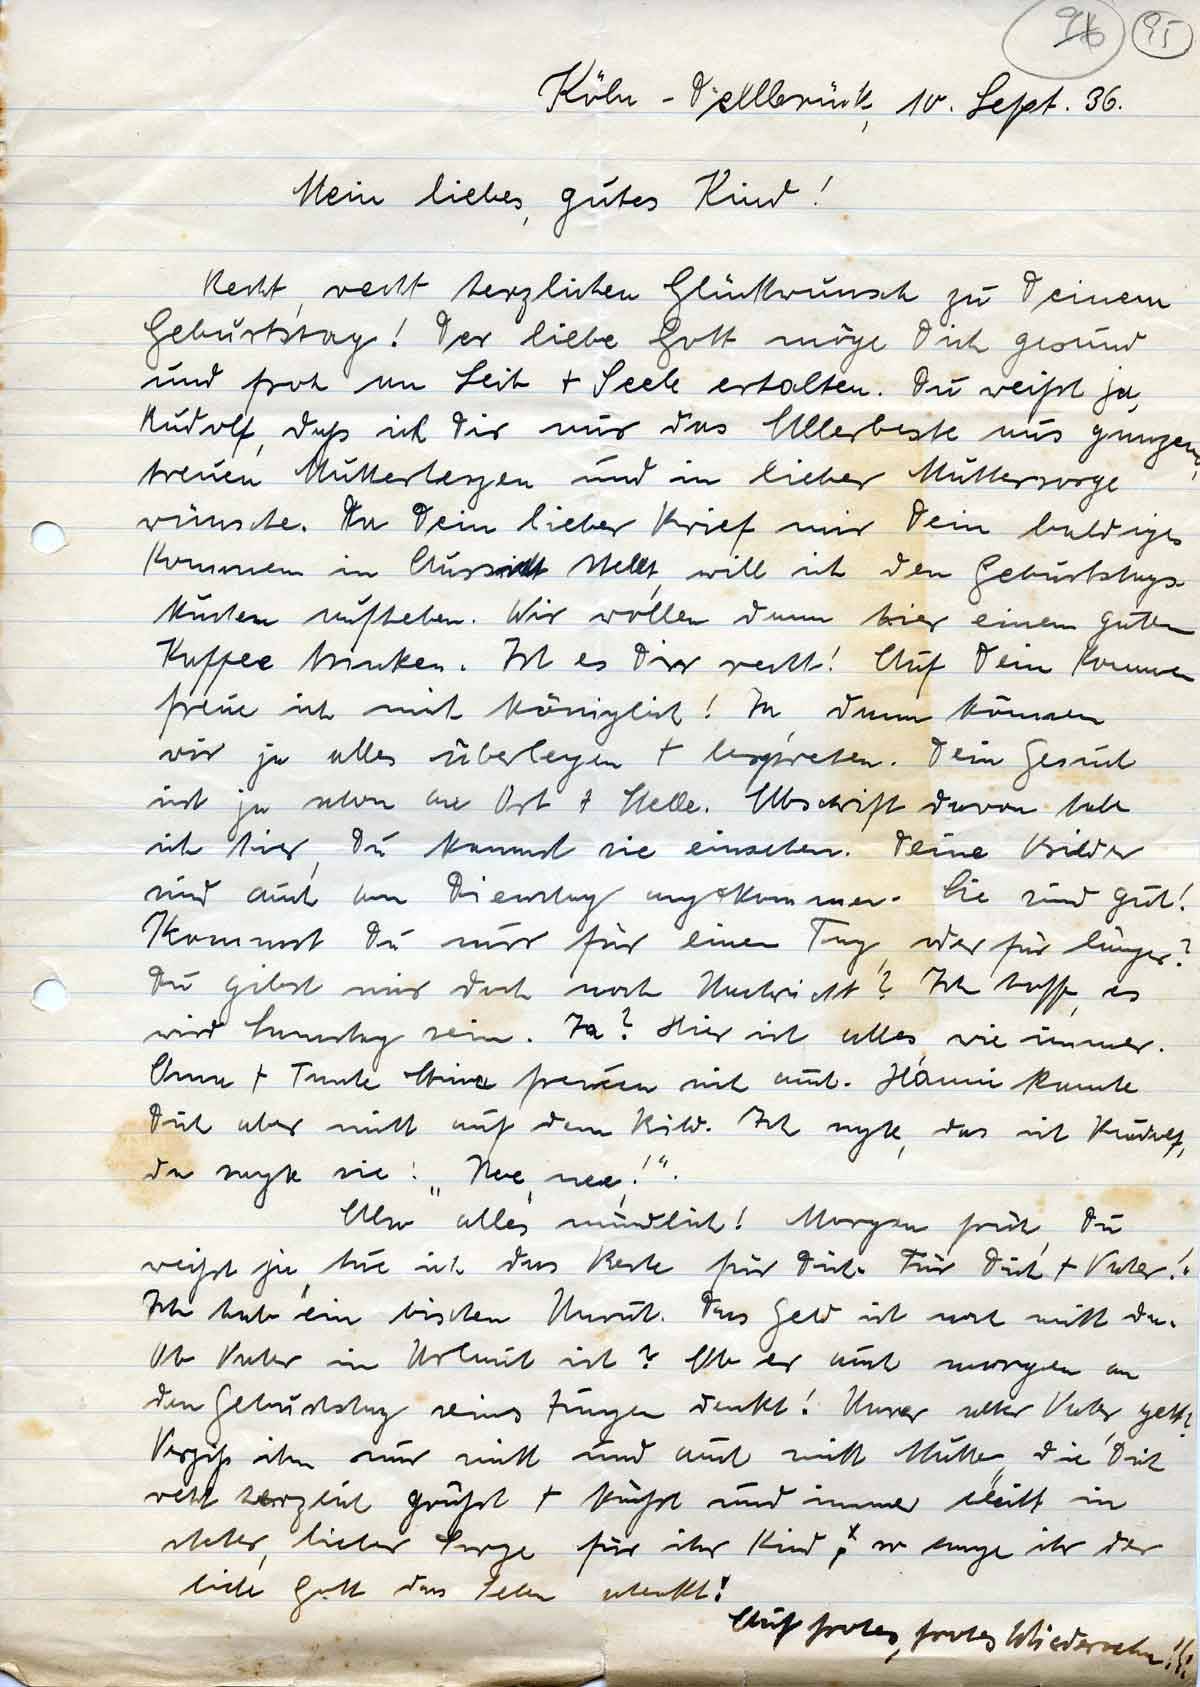 95
Köln - Dellbrück, 10. Sept. 36.
Mein liebes, gutes Kind!
Recht, recht herzlichen Glückwunsch zu Deinem
Geburtstag! Der liebe Gott möge Dich gesund
und froh an Leib + Seele erhalten. Du weißt ja,
Rudolf, daß ich Dir nur das Allerbeste aus ganzem,
treuen Mutterherzen und in lieber Muttersorge
wünsche. Da Dein lieber Brief mir Dein baldiges
Kommen in Aussicht stellt, will ich den Geburtstags-
kuchen aufheben. Wir wollen dann hier einen guten
Kaffee trinken. Ist es Dir recht! Auf Dein Kommen
freue ich mich königlich! Ja, dann können
wir ja alles überlegen + besprechen. Dein Gesuch
ist ja schon an Ort + Stelle. Abschrift davon habe
ich hier, Du kannst sie einsehen. Deine Bilder
sind auch am Dienstag angekommen. Sie sind gut!
Kommst Du nur für einen Tag, oder für länger?
Du gibst mir doch noch Nachricht? Ich hoffe, es
wird Samstag sein. Ja? Hier ist alles wie immer.
Oma + Tante freuen sich auch. Hanni kannte
Dich aber nicht auf dem Bild. Ich sagte, das ist Rudolf,
da sagte sie: „Nee, nee!“.
Also alles mündlich! Morgen früh, Du
weißt ja, tue ich das Beste für Dich. Für Dich + Vater!
Ich hab ein bischen Unruh. Das Geld ist noch nicht da.
Ob Vater in Urlaub ist? Ob er auch morgen an
den Geburtstag seines Jungen denkt! Unser alter Vater, gell?
Vergiß ihn nur nicht und auch nicht Mutter, die Dich
recht herzlich grüßt + küßt und immer bleibt in
steter, lieber Sorge für ihr Kind, so lange ihr der
liebe Gott das Leben schenkt!
Auf frohes, frohes Wiedersehn!!!